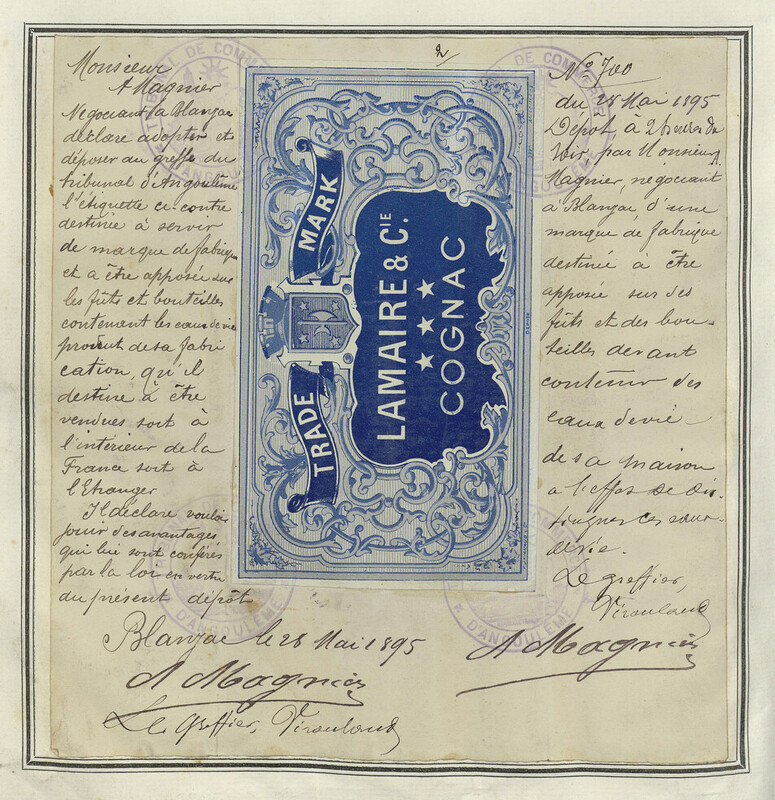 2/
Monsieur
A Magnier
Négociant à Blanzac
déclare adopter et
déposer au greffe du
tribunal d'Angoulême
l'étiquette ci-contre
destinée à servir
de marque de fabrique
et a être apposée sur
les fûts et bouteilles
contenant les eaux de vie
provent de sa fabri
cation, qu'il
destine à être
vendues soit à
l'intérieur de la
France soit à
l'Etranger
Il déclare vouloir
jouir des avantages
qui lui sont conférés
par la loi en vertu
du présent dépôt
Blanzac le 28 Mai 1895
A Magnier
Le Greffier, Viroulaud
TRADE MARK
LAMAIRE & CIE.
COGNAC
No 700
du 28 Mai 1895
Dépôt à 2 heures du
soir par Monsieur A.
Magnier, négociant
à Blanzac, d'une
marque de fabrique
destinée à être
apposée sur des
fûts et des bou-
teilles devant
contenir des
eaux de vie
de sa maison
a l'effet de dis-
tinguer ces eaux-
de vie.
Le greffier,
Viroulaud
A Magnier
TRIBUNAL DE COMMERCE
D'ANGOULÊME
DE COMMERCE
D'ANGOULÊME